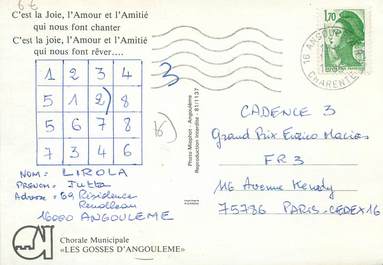 6€
C'est la Joie, l'Amour et l'Amitié
qui nous font chanter
C'est la joie, l'Amour et l'Amitié
qui nous font rêver....
1 2 3 4
5 1 2 8
5 6 7 8
7 3 4 6
3
16
NOM : LIROLA
PRENOM : Jutta
Adresse : 59 Résidence
Rendleau
16000 ANGOULEME
Chorale Municipale
«LES GOSSES D'ANGOULEME»
Photo Mitophot - Angoulême
Reproduction Interdite - 81/1137
1,70
16 ANGOU
CHARENTE
CADENCE 3
Grand Prix Enrico Macias
FR3
116 Avenue Kenedy
75786 PARIS-CEDEX 16